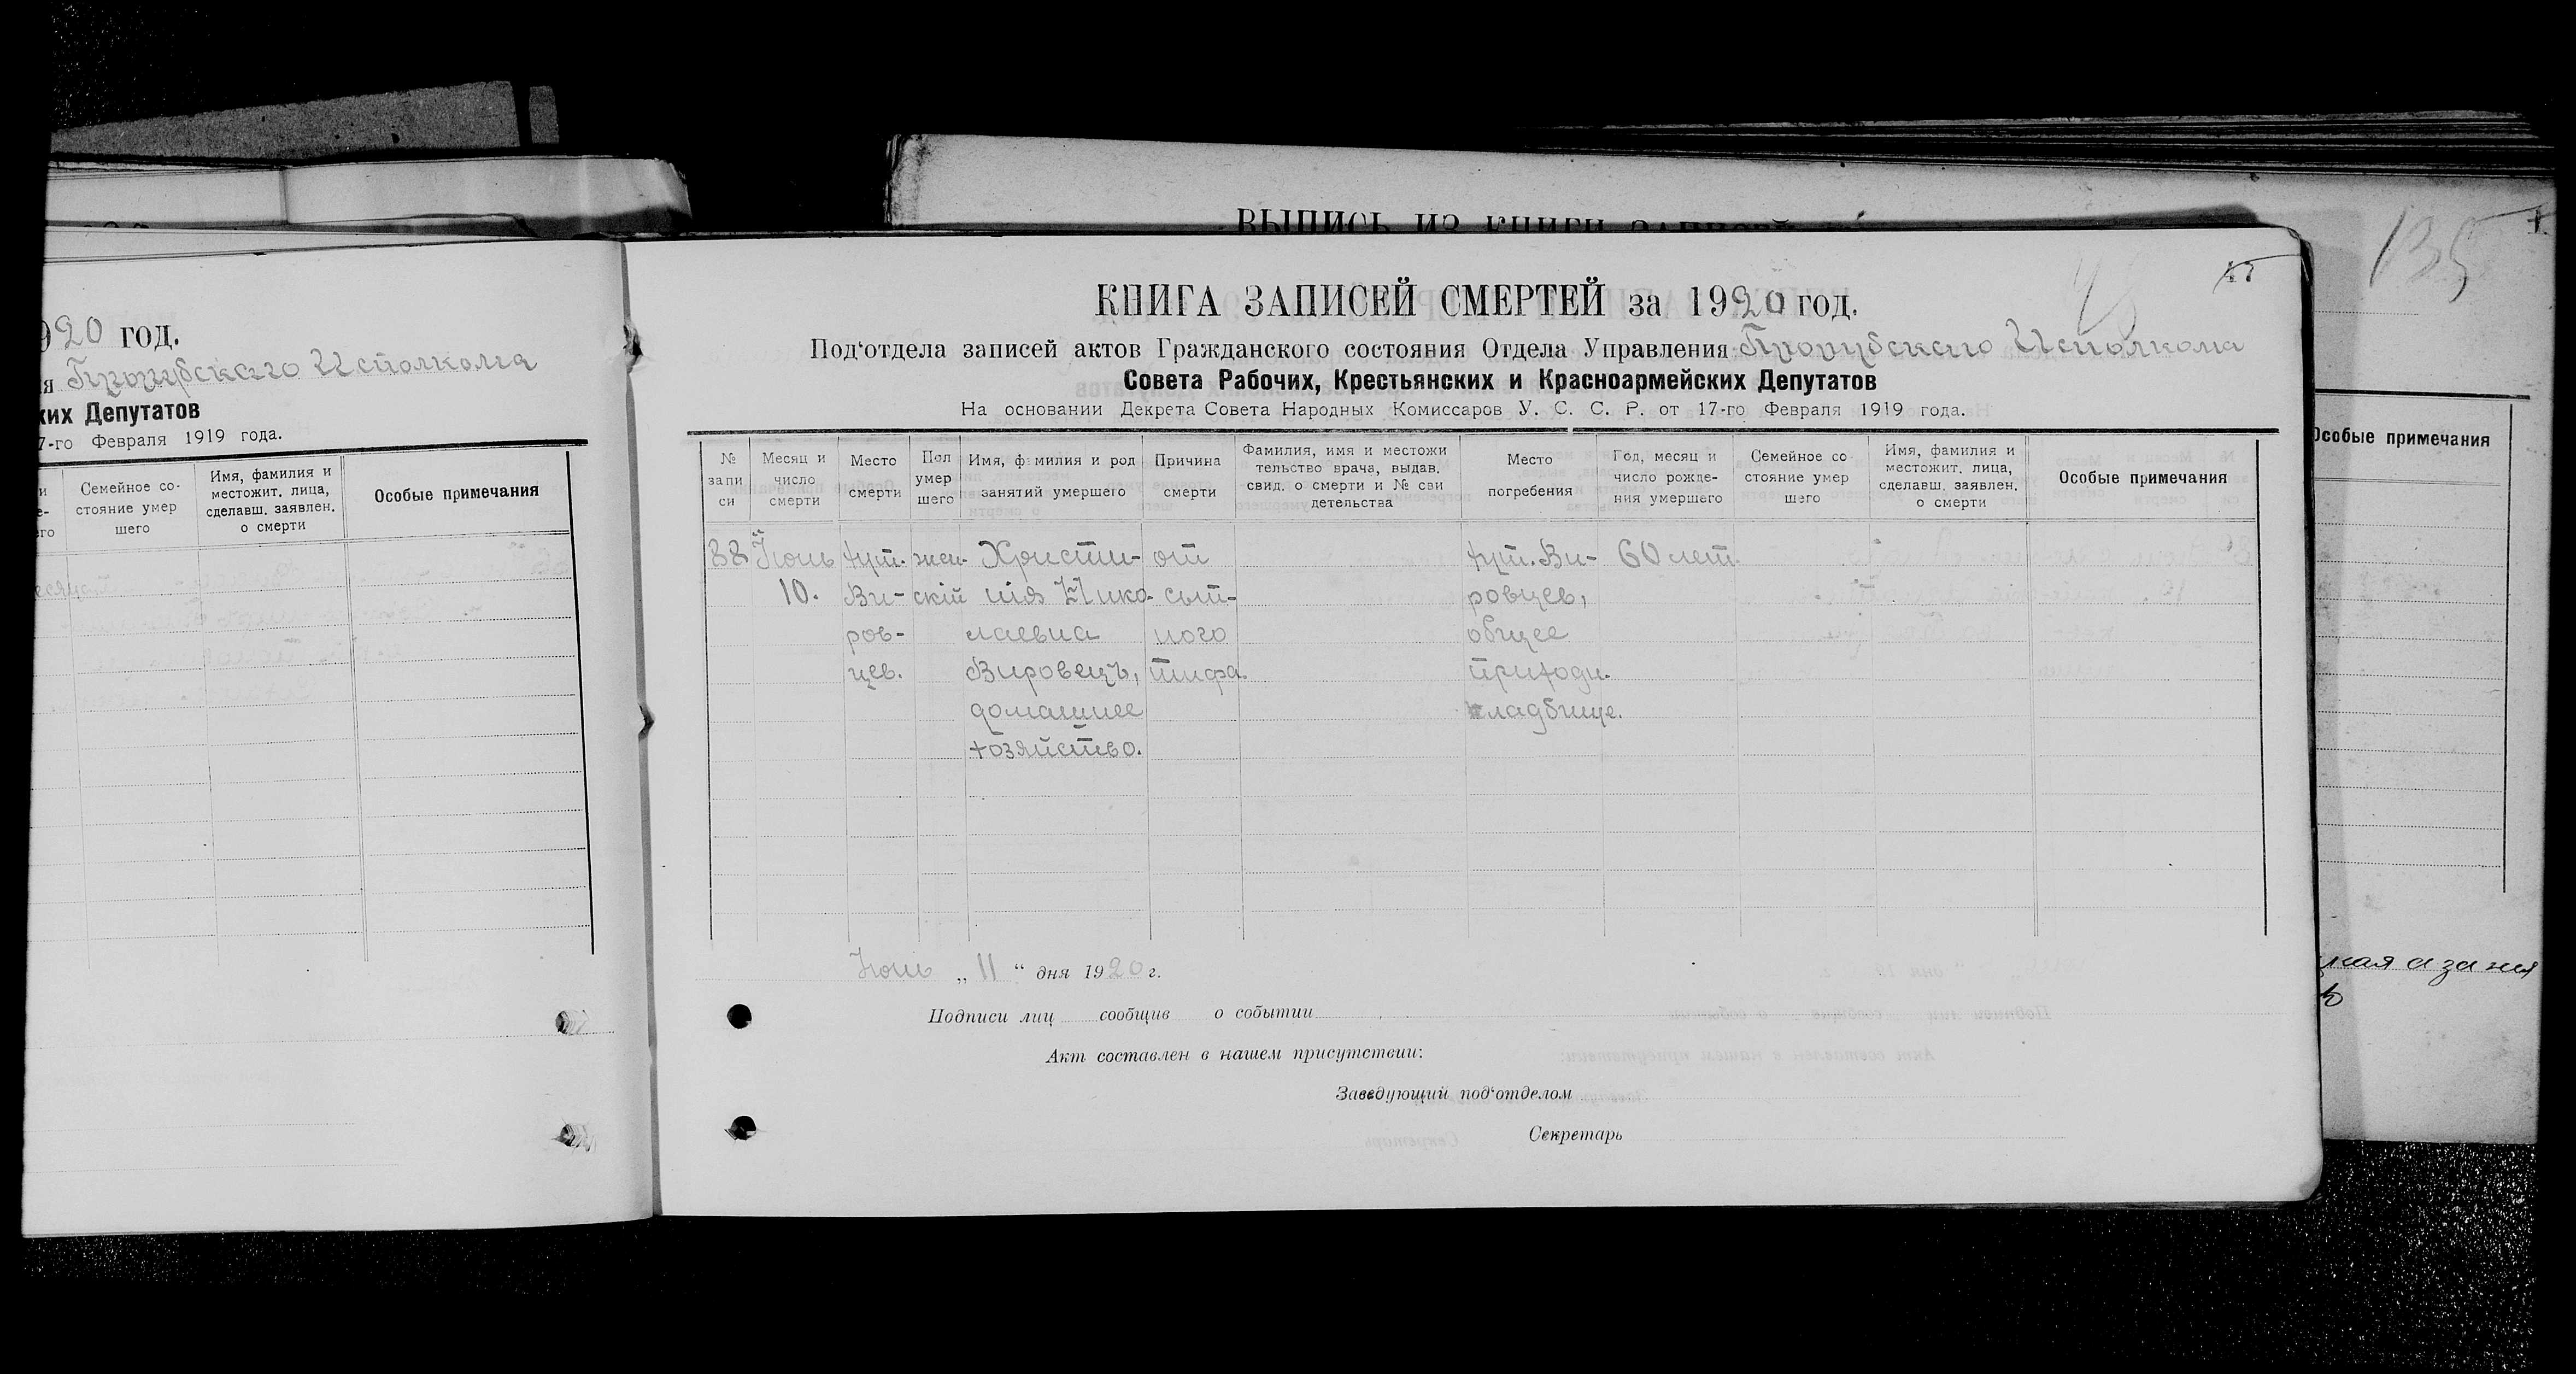 ВЫПИСЬ ИЗ КНИГИ ЗАПИСЕЙ
135
920 год.
я Прорубского Исполкома
ких Депутатов
7-го Февраля 1919 года.
Семейное со-
стояние умер
шего
Имя, фамилия и
местожит. лица,
сделавш. заявлен.
о смерти
Особые примечания
КНИГА ЗАПИСЕЙ СМЕРТЕЙ за 1920 год.
Под‘отдела записей актов Гражданского состояния Отдела Управления Прорубского Исполкома
Совета Рабочих, Крестьянских и Красноармейских Депутатов
На основании Декрета Совета Народных Комиссаров У. С. С. Р. от 17-го Февраля 1919 года.
№
запи
си
Месяц и
число
смерти
Место
смерти
Пол
умер
шего
Имя, фамилия и род
занятий умершего
Причина
смерти
Фамилия, имя и местожи
тельство врача, выдав.
свид. о смерти и № сви
детельства
Место
погребения
Год, месяц и
число рожде-
ния умершего
Семейное со
стояние умер
шего
Имя, фамилия и
местожит. лица,
сделавш. заявлен.
о смерти
Особые примечания
88
Июнь
10.
хут.
Ви-
ров-
цев.
жен-
скій
Христи-
нія Нико-
лаевна
Вировецъ,
домашнее
хозяйство.
от
сып-
ного
тифа.
хут. Ви-
ровцев,
общее
приходи.
кладбище.
60 лет.
Июнь „ 11 “ дня 1920 г.
Подписи лиц сообщив о событии
Акт составлен в нашем присутствии:
Заведующий под‘отделом
Секретарь
Особые примечания